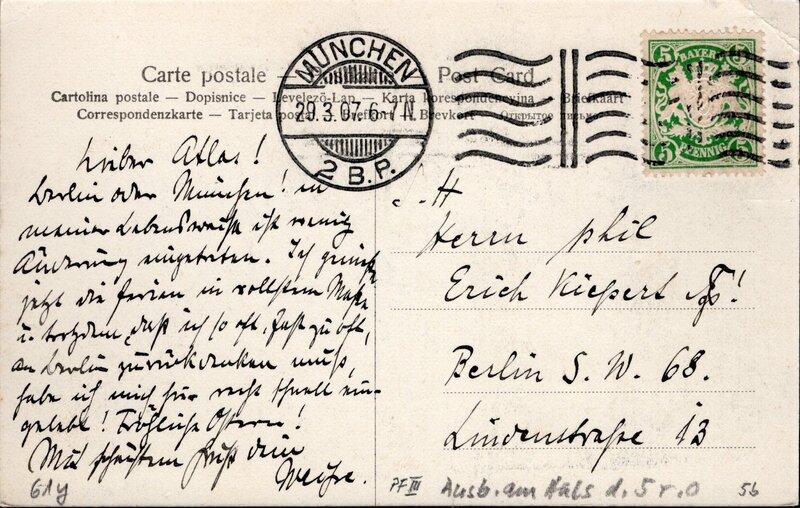 Carte postale — Post Card
Cartolina postale — Dopisnice — Levelező-Lap — Karta korespondencyjna — Briefkaart
Correspondenzkarte — Tarjeta postal — Brefkort — Brevkort — Открытое письмо
MÜNCHEN
29.3.07. 6-7 N.
2 B.P.
5 BAYERN 5
5 PFENNIG 5
Lieber Atlas!
Berlin oder München! in
meiner Lebensweise ist wenig
Änderung eingetreten. Ich genieße
jetzt die Ferien in vollstem Maße
u. trotzdem, daß ich so oft, fast zu oft,
an Berlin zurückdenken muß,
habe ich mich hier recht schnell ein-
gelebt! Fröhliche Ostern!
Mit schönstem Gruß dein
Weise.
H
Herrn phil
Erich Kiepert
Berlin S. W. 68.
Lindenstraße 13
61y
PF III Ausb. am Hals d. 5 r. o
56